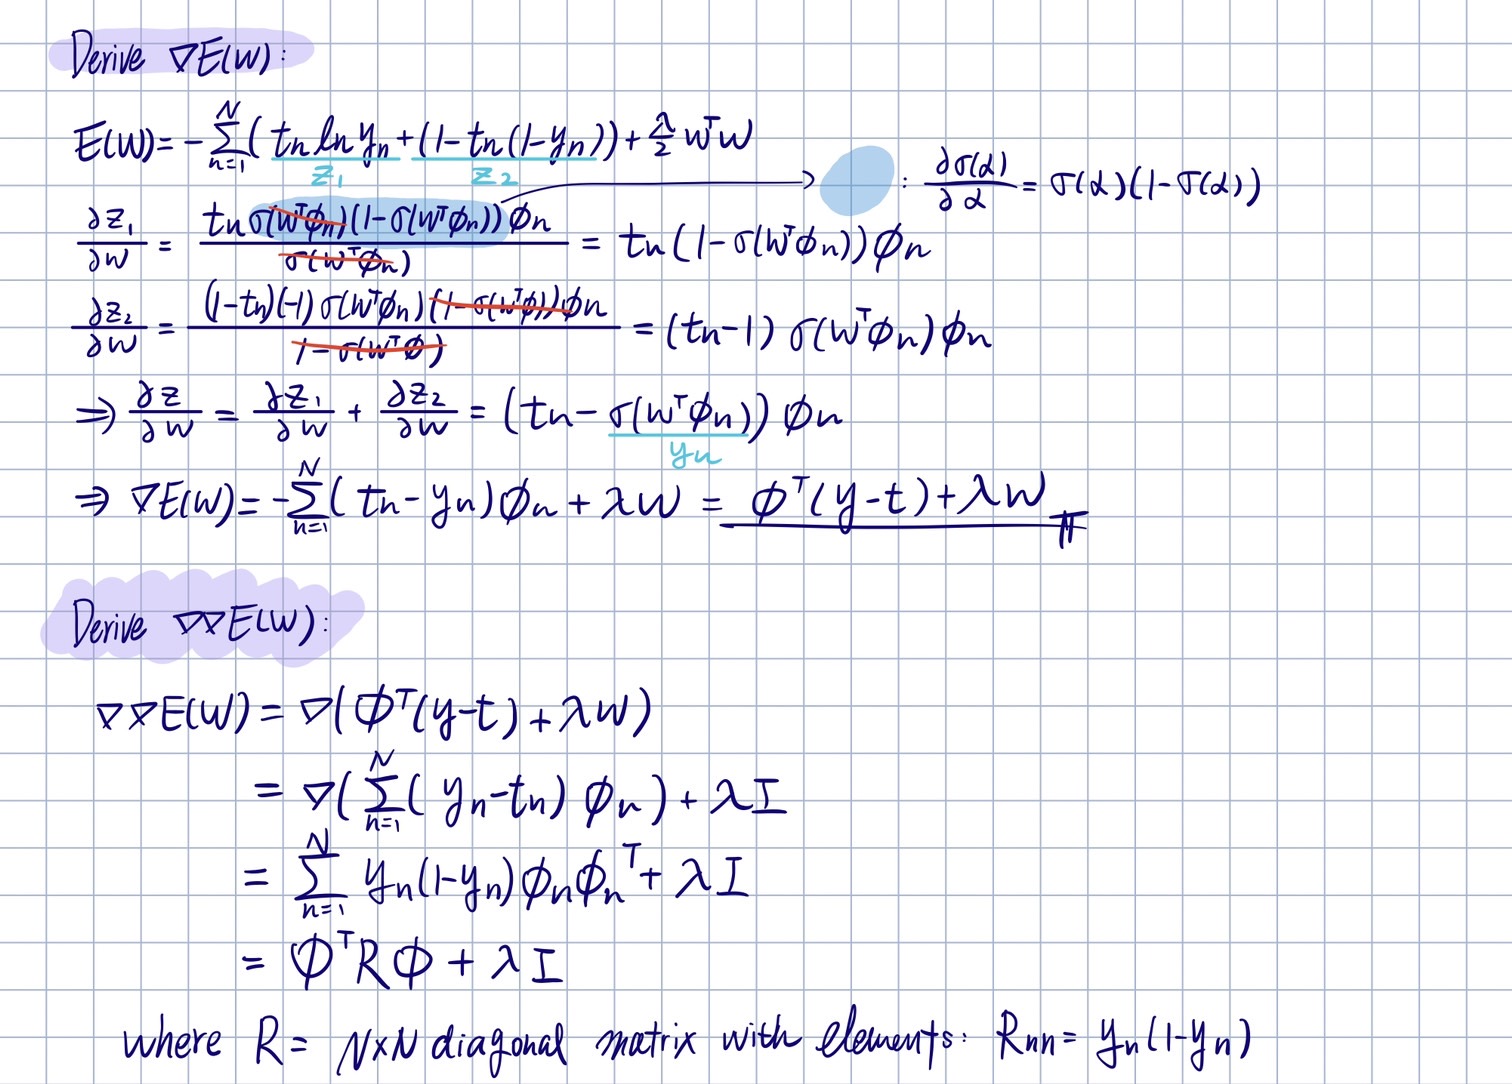 Derive ∇E(W):
E(W)= -∑_{n=1}^{N}( tn ln yn + (1-tn(1-yn)) + λ/2 wᵀw
z₁ z₂
: ∂σ(α)/∂α = σ(α)(1-σ(α))
∂z₁/∂w = tn σ(wᵀϕn)(1-σ(wᵀϕn))ϕn / σ(wᵀϕn) = tn(1-σ(wᵀϕn))ϕn
∂z₂/∂w = (1-tn)(-1)σ(wᵀϕn)(1-σ(wᵀϕ))ϕn / 1-σ(wᵀϕ) = (tn-1) σ(wᵀϕn)ϕn
⇒ ∂z/∂w = ∂z₁/∂w + ∂z₂/∂w = (tn - σ(wᵀϕn)) ϕn
yn
⇒ ∇E(W)= -∑_{n=1}^{N}( tn - yn)ϕn + λw = ϕᵀ(y-t)+λw
Derive ∇∇E(W):
∇∇E(W) = ∇(Φᵀ(y-t) + λw)
= ∇(∑_{n=1}^{N}( yn-tn) ϕn) + λI
= ∑_{n=1}^{N} yn(1-yn)ϕnϕnᵀ + λI
= ΦᵀRΦ + λI
where R = N×N diagonal matrix with elements: Rnn = yn(1-yn)